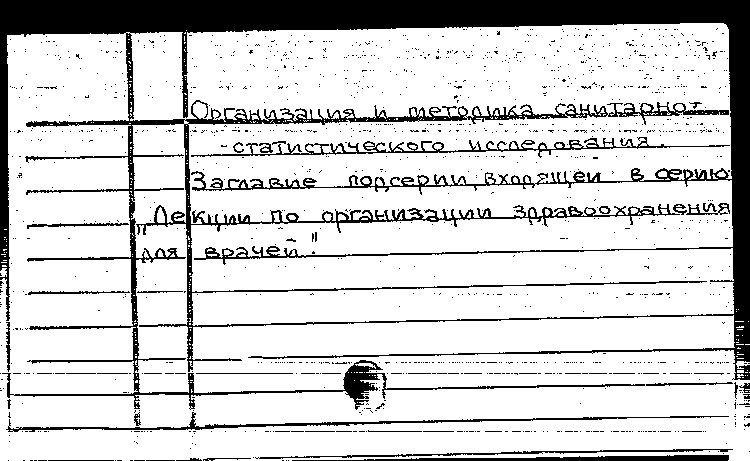 Организация и методика санитарно-
-статистического исследования.
Заглавие подсерии, входящей в серию
„Лекции по организации здравоохранения
для врачей".